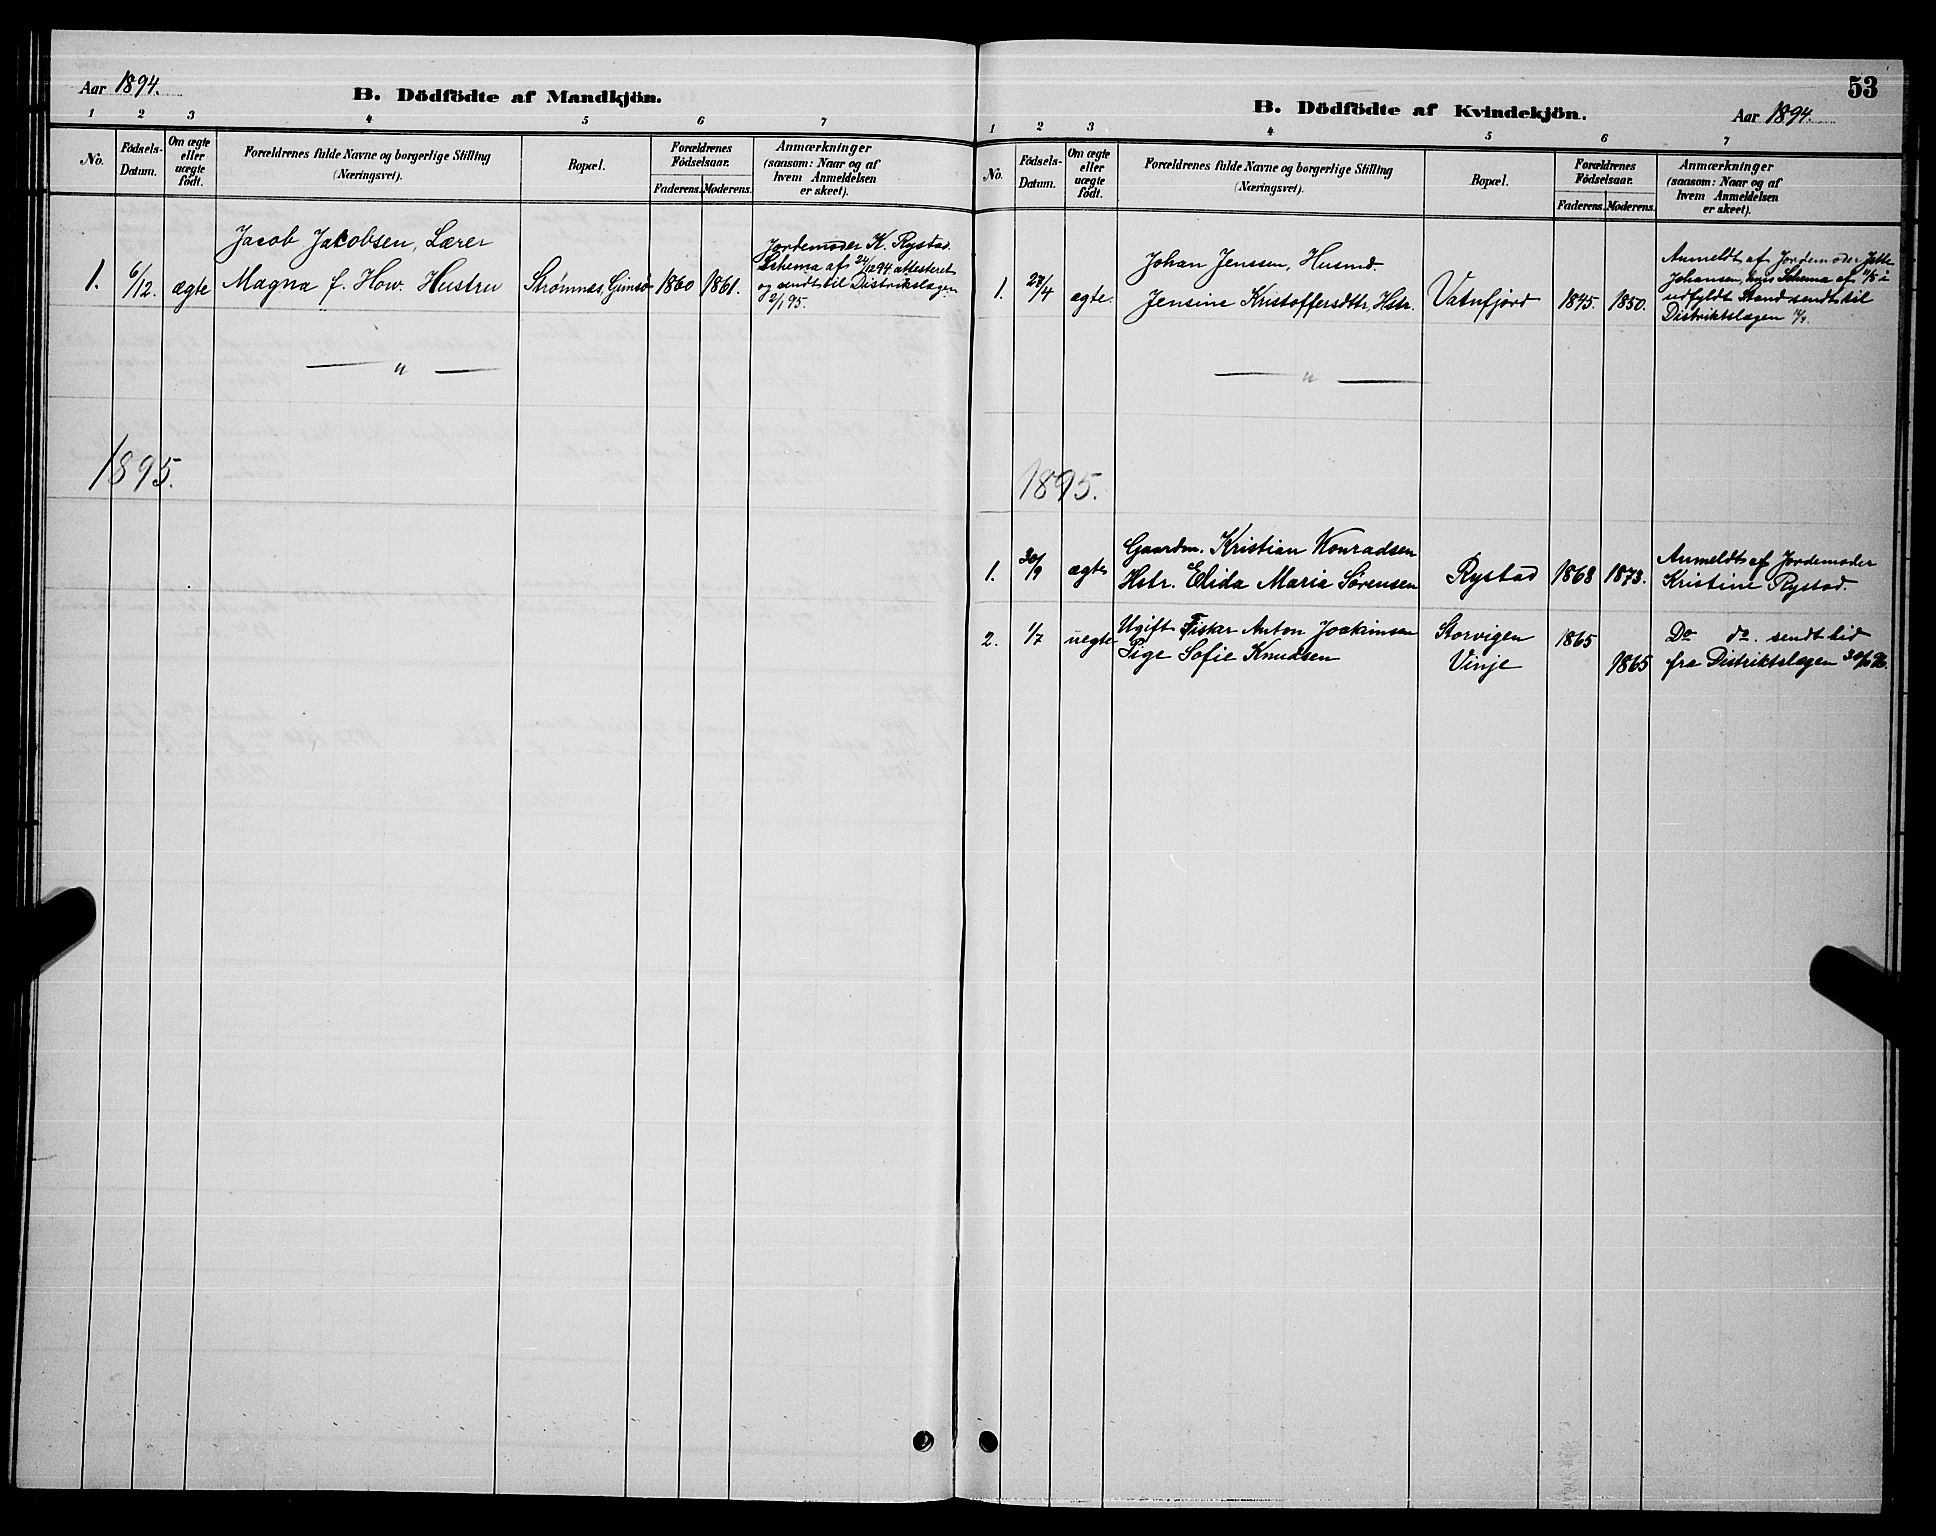 Aar 1894.
B. Dödfödte af Mandkjön.
1 2 3 4 5 6 7
No.
Födsels-
Datum.
Om ægte
eller
uægte
födt.
Forældrenes fulde Navne og borgerlige Stilling
(Næringsvei).
Bopæl.
Forældrenes
Födselsaar.
Faderens. Moderens.
Anmærkninger
(saasom: Naar og af
hvem Anmeldelsen
er skeet).
Jacob Jacobsen, Lærer
1. 6/12. ægte Magna f. How. Hustru Strømnes, Gimsø 1860 1861.
Jordemoder K. Rystad.
Schema af 24/12 94 attesteret
og sendt til Distrikslægen
2/1 95.
— " —
1895.
53
B. Dödfödte af Kvindekjön.
Aar 1894.
1 2 3 4 5 6 7
No.
Födsels-
Datum.
Om ægte
eller
uægte
födt.
Forældrenes fulde Navne og borgerlige Stilling
(Næringsvei).
Bopæl.
Forældrenes
Födselsaar.
Faderens. Moderens.
Anmærkninger
(saasom: Naar og af
hvem Anmeldelsen
er skeet).
Johan Jenssen, Husmd.
1. 27/4 ægte. Jensine Kristoffersdttr, Hstr. Vatnfjord 1845. 1850.
Anmeldt af Jordemoder Jette
Johansen, hvis Schema af i
udfyldt Stand sendt til
Distriktslægen
— " —
1895.
Gaardm. Kristian Konradsen
1. 30/9 ægte Hstr. Elida Maria Sørensen Rystad 1868 1873.
Anmeldt af Jordemoder
Kristine Rystad.
2. 1/7 uegte Ugift Fisker Anton Joakimsen Storvigen 1865 Do do. sendt hid
Pige Sofie Knudsen Vinje 1865 fra Distriktslægen